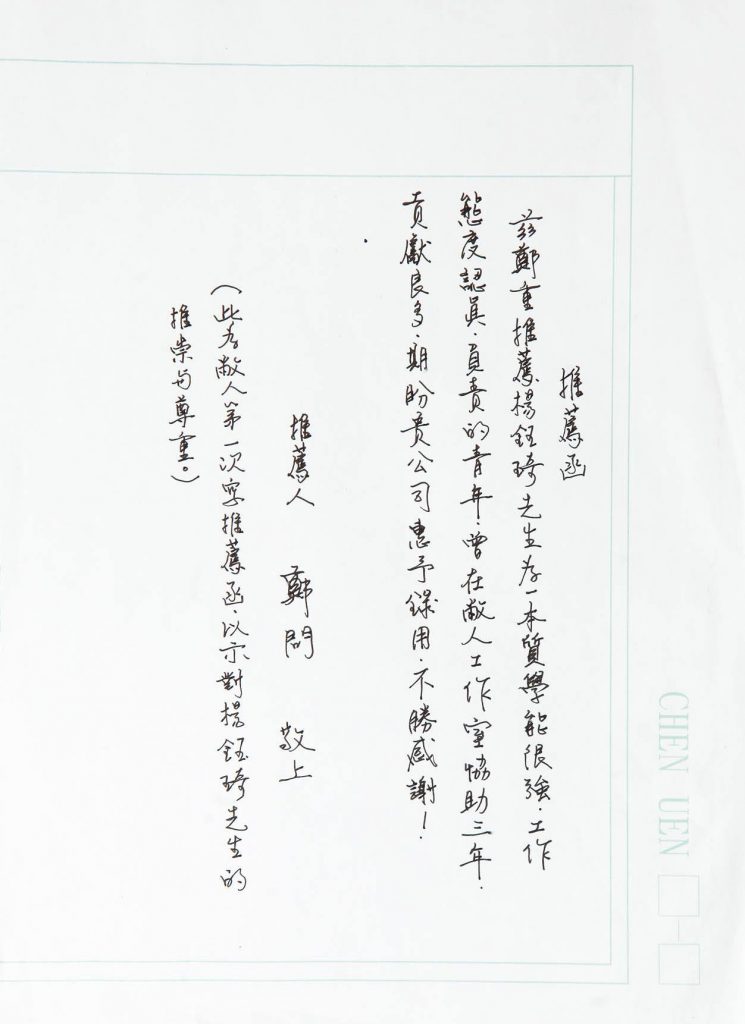 推薦函
茲鄭重推薦楊鈺琦先生為一本質學能很強．工作
態度認真．負責的青年．曾在敝人工作室協助三年．
貢獻良多．期盼貴公司惠予錄用．不勝感謝！
推薦人 鄭問 敬上
（此為敝人第一次寫推薦函．以示對楊鈺琦先生的
推崇与尊重。）
CHEN UEN